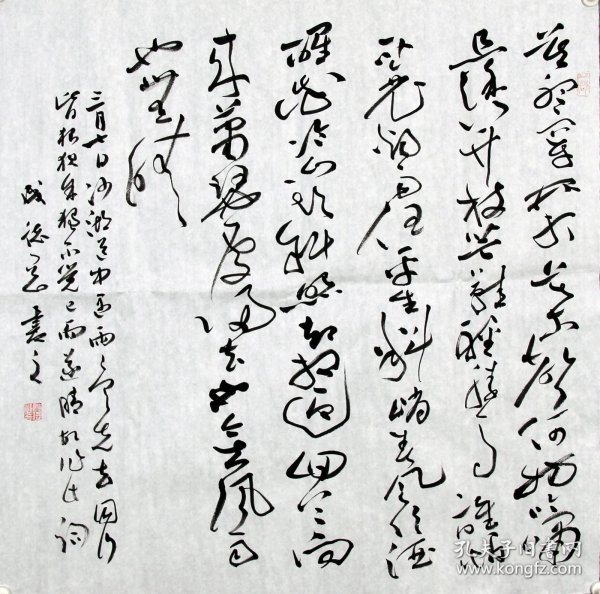 莫听穿林打叶声何妨吟啸
且徐行竹杖芒鞋轻胜马谁怕
一蓑烟雨任平生料峭春风吹酒
醒微冷山头斜照却相迎回首向
来萧瑟处归去也无风雨
也无晴
三月七日沙湖道中遇雨雨具先去同行
皆狼狈余独不觉已而遂晴故作此词
孔夫子旧书网
www.kongfz.com